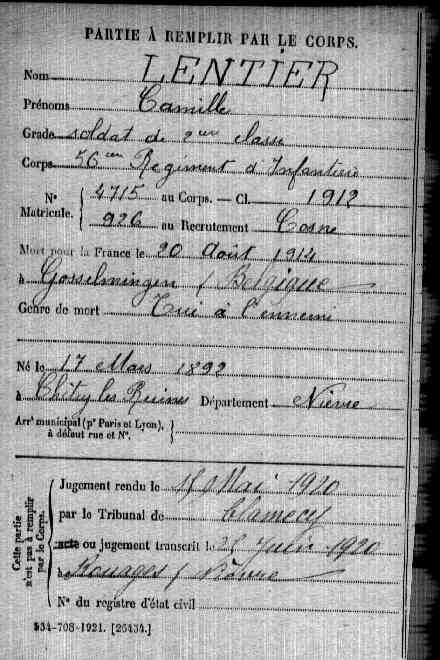 PARTIE À REMPLIR PAR LE CORPS.
Nom LENTIER
Prénoms Camille
Grade soldat de 2eme classe
Corps 56eme Régiment d'Infanterie
N° Matricule. { 4715 au Corps. — Cl. 1912
926 au Recrutement Cosne
Mort pour la France le 20 Août 1914
à Gosselmingen / Belgique
Genre de mort Tué à l'ennemi
Né le 17 Mars 1892
à Chitry les Mines Département Nièvre
Arrt municipal (pr Paris et Lyon), à défaut rue et N°. }
Cette partie n'est pas à remplir par le Corps.
Jugement rendu le Mai 1920
par le Tribunal de Clamecy
acte ou jugement transcrit le Juin 1920
à Nouages / Nièvre
N° du registre d'état civil
534-708-1921. [26434.]